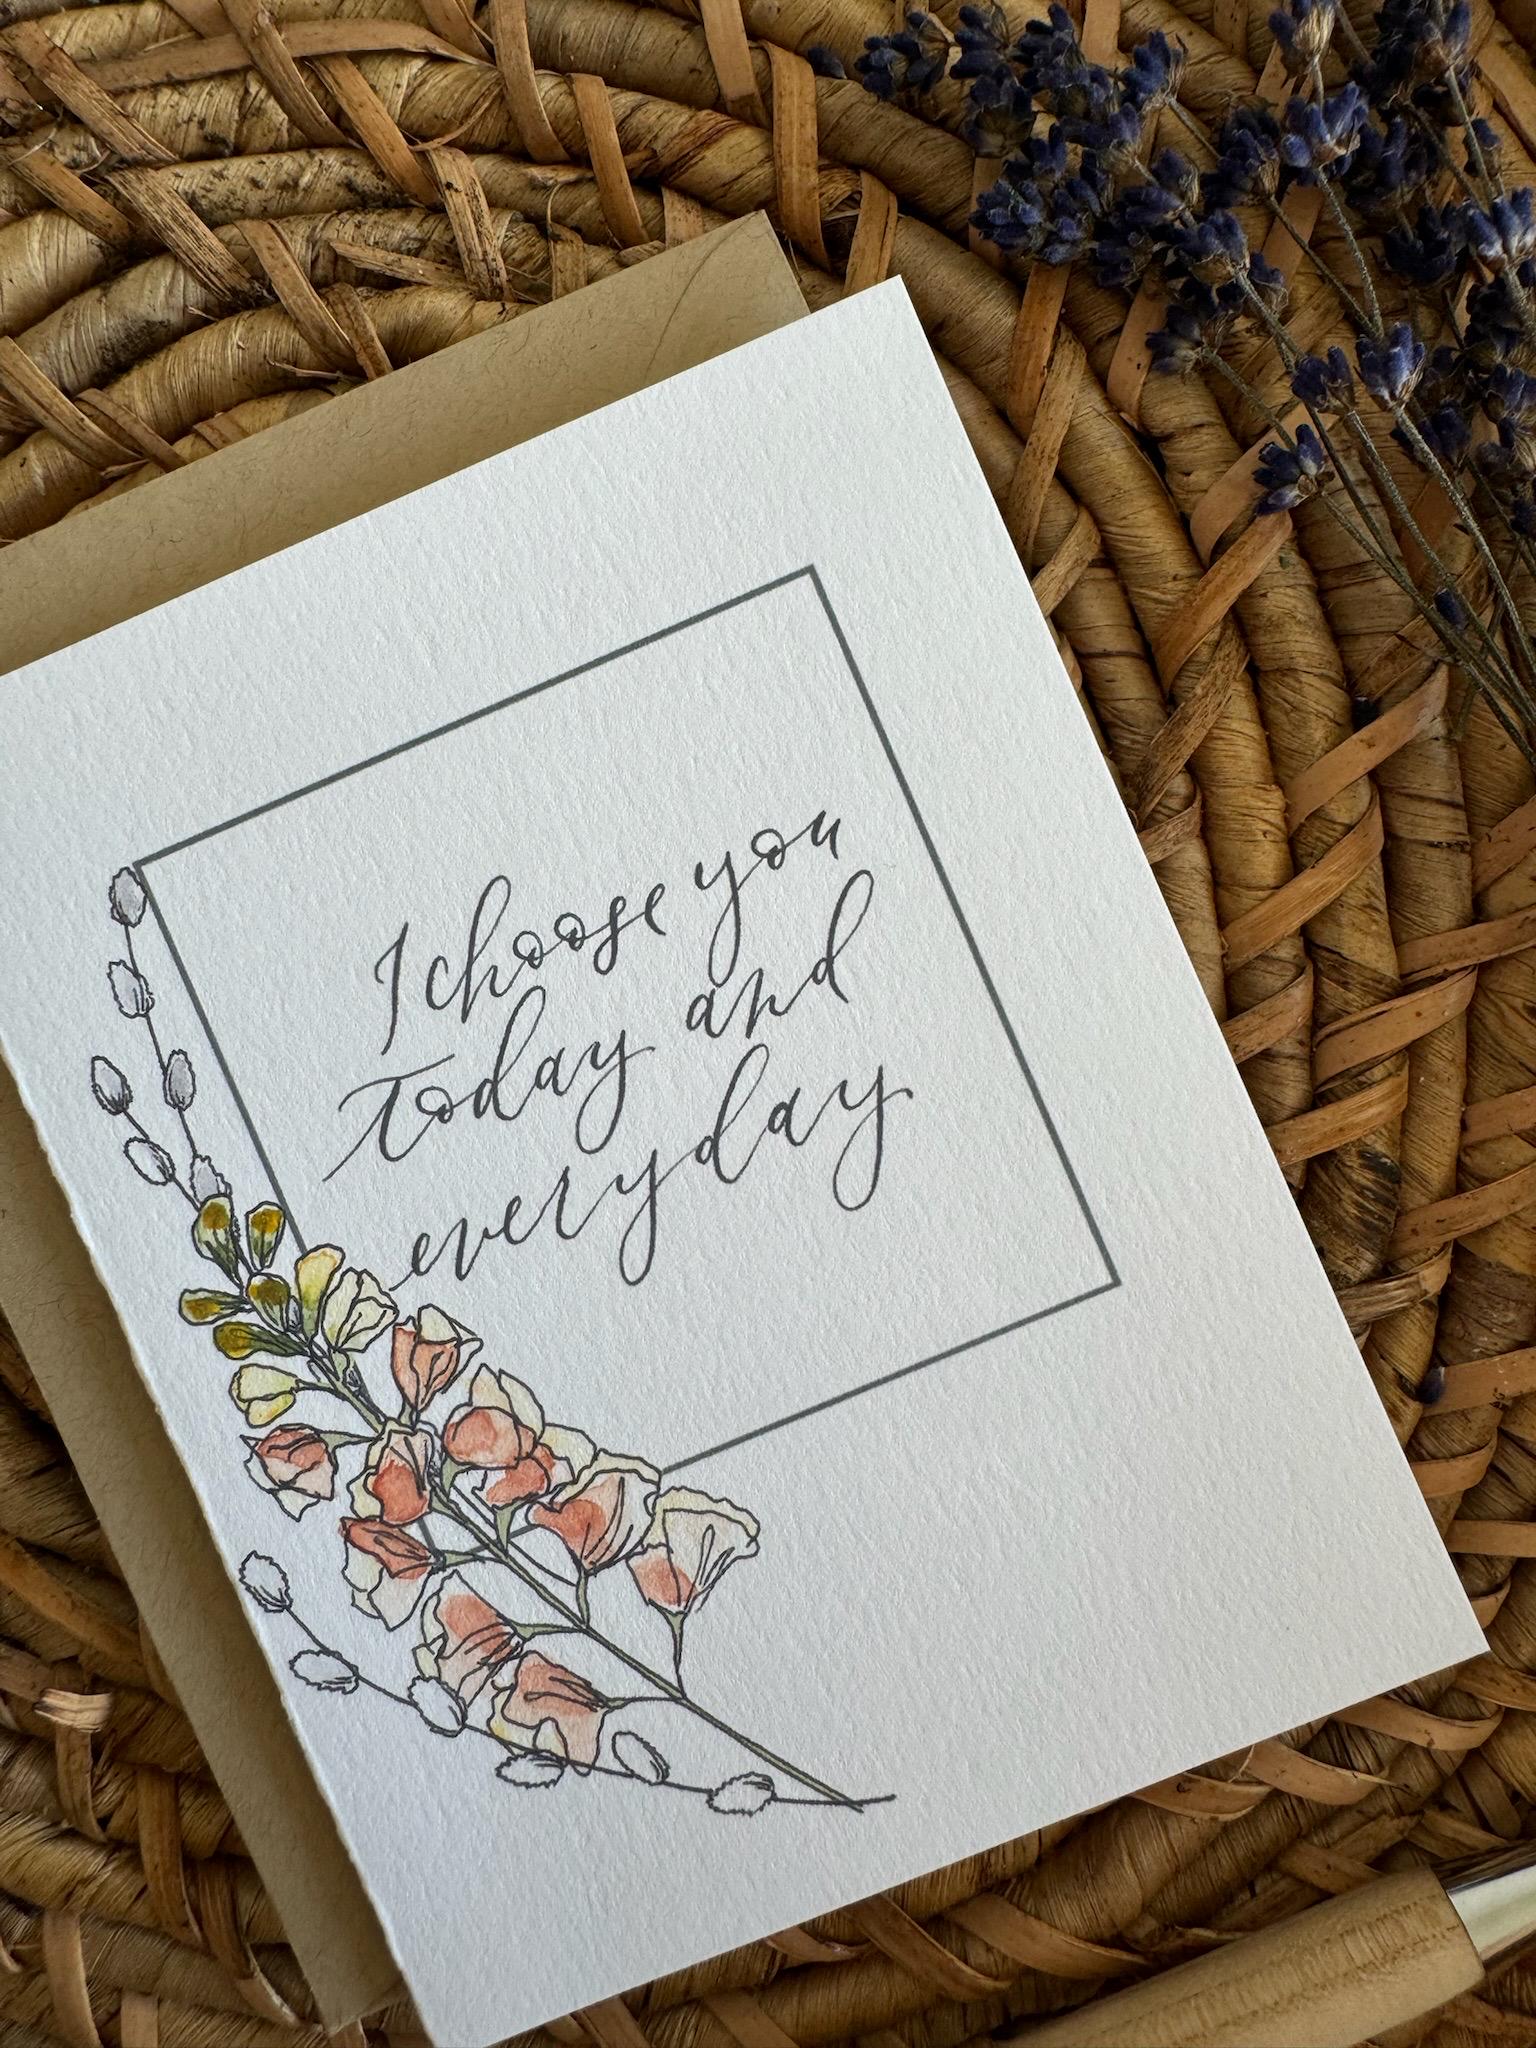 I choose you
today and
everyday